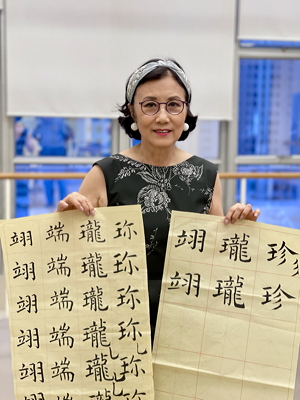 翊 端 瓏 珎
翊 端 瓏 珎
翊 端 瓏 珎
翊 端 瓏 珎
翊 端 瓏 珎
翊 瓏 珍
翊 瓏 珍